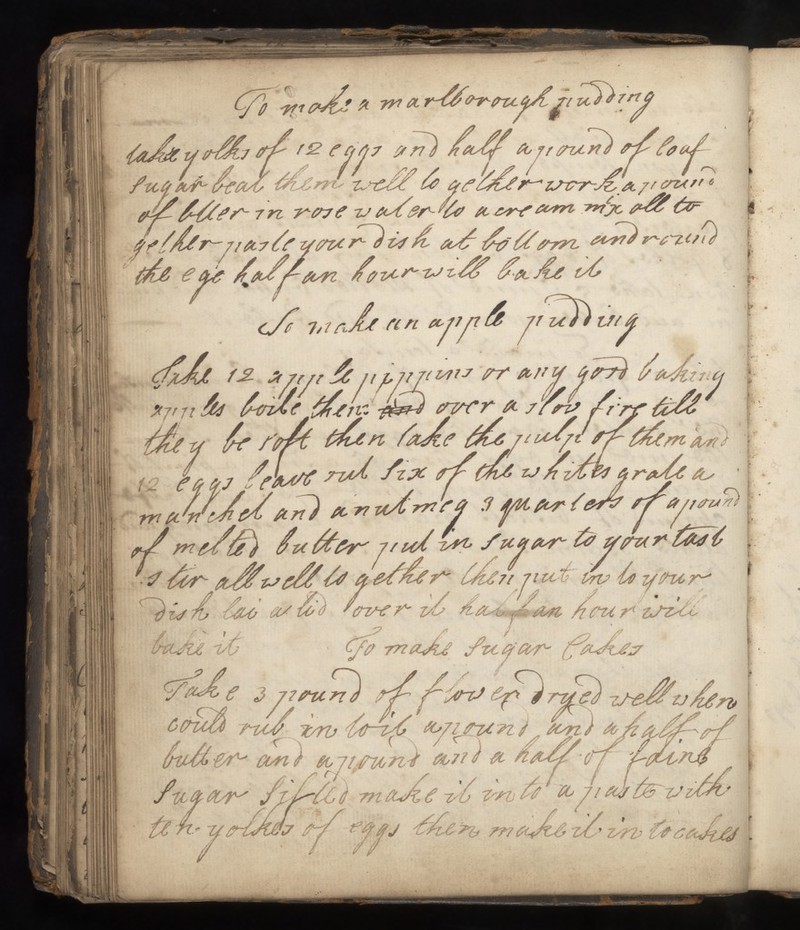 To make a marlborough pudding
take yolks of 12 eggs and half a pound of loaf
sugar beat them well to gether work a pound
of btter in rose water to a cream mix all to
gether paste your dish at bottom and round
the ege half an hour will bake it
To make an apple pudding
Take 12 apple pippins or any good baking
apples boile them and over a slow fire till
they be soft then take the pulp of them and
12 eggs leave out six of the whites grate a
manchet and a nutmeg 3 quarters of a pound
of melted butter put in sugar to your tast
stir all well to gether then put in to your
dish lai a lid over it half an hour will
bake it To make Sugar Cakes
Take 3 pound of flower dryed well when
could rub in to it a pound and a half of
butter and a pound and a half of faine
Sugar Sifted make it in to a paste with
ten yolkes of eggs then make it in to cakes